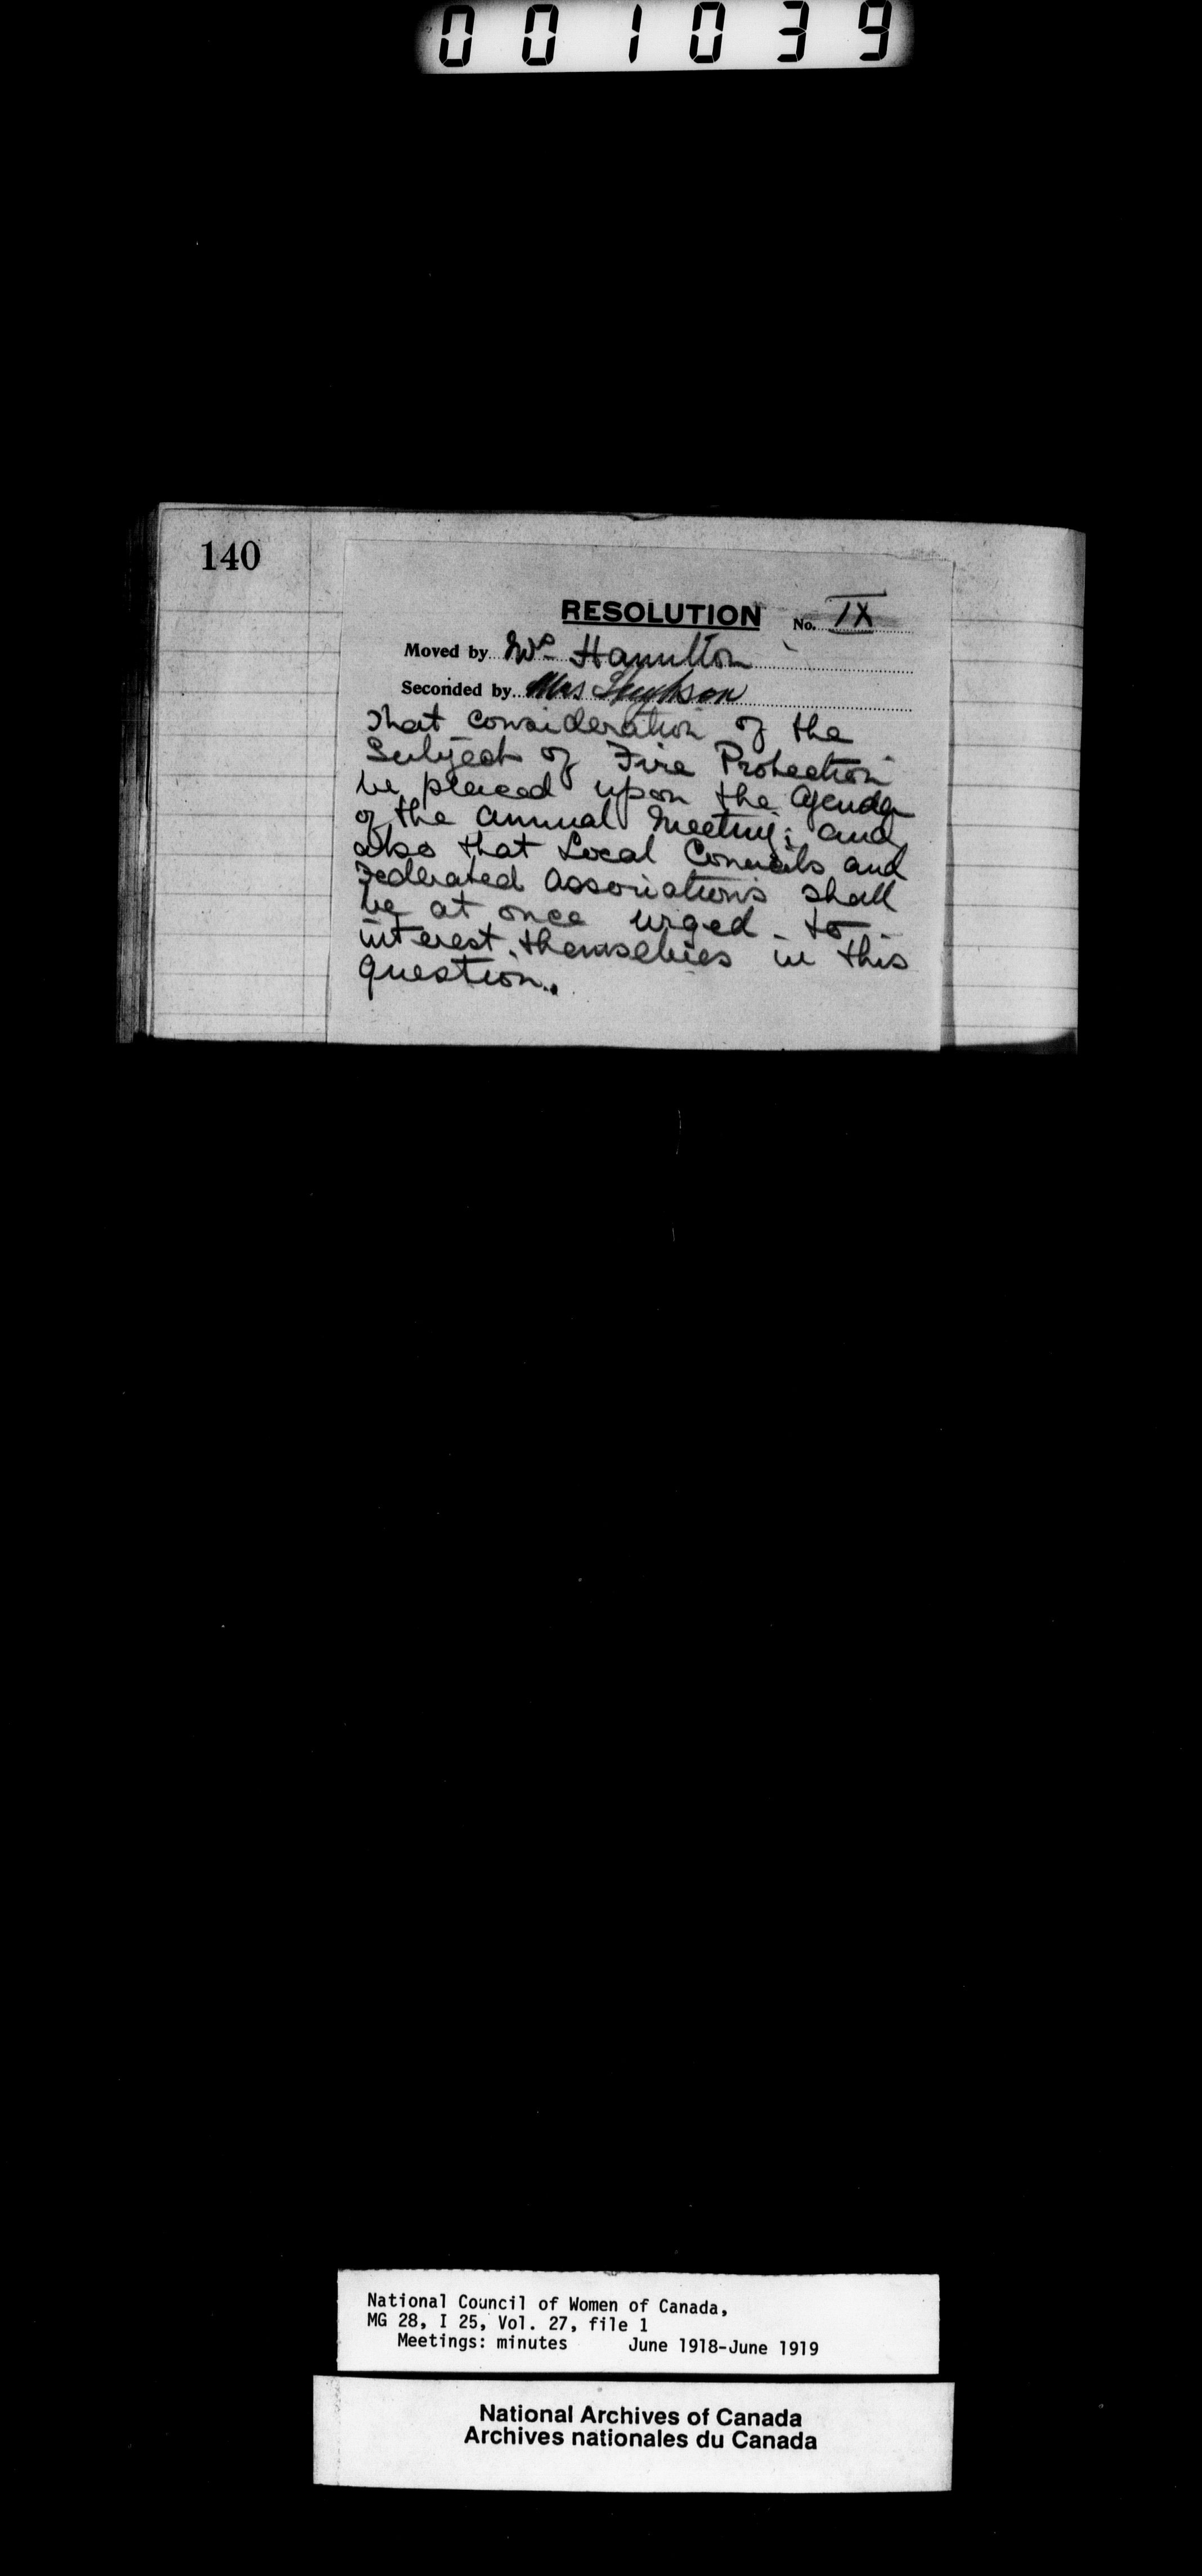 001039
140
RESOLUTION No. IX
Moved by Mrs Hamilton
Seconded by Mrs
That consideration of the
Subject of Fire Protection
be placed upon the Agenda
of the Annual Meeting; and
also that Local Councils and
Federated Associations shall
be at once urged to
interest themselves in this
question.
National Council of Women of Canada,
MG 28, I 25, Vol. 27, file 1
Meetings: minutes June 1918-June 1919
National Archives of Canada
Archives nationales du Canada